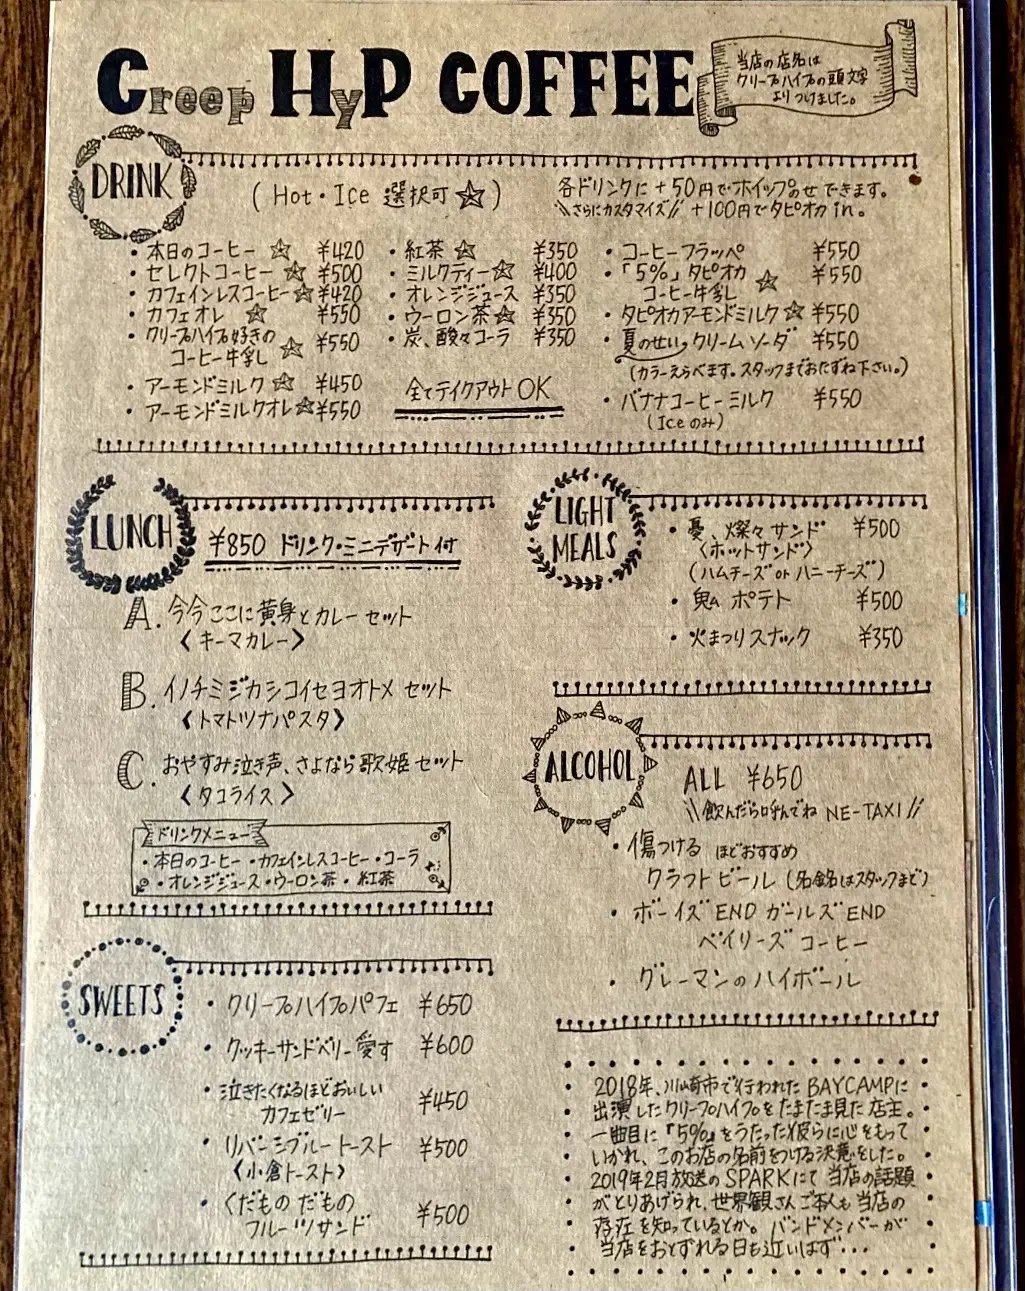 Creep HyP COFFEE
当店の店名は
クリープハイプの頭文字
よりつけました。
DRINK
(Hot・Ice 選択可☆)
各ドリンクに+50円でホイップのせできます。
\\さらにカスタマイズ// +100円でタピオカin。
・本日のコーヒー ☆ ¥420
・セレクトコーヒー ☆ ¥500
・カフェインレスコーヒー☆ ¥420
・カフェオレ ☆ ¥550
・クリープハイプ好きの
コーヒー牛乳 ☆ ¥550
・アーモンドミルク ☆ ¥450
・アーモンドミルクオレ☆ ¥550
・紅茶 ☆ ¥350
・ミルクティー☆ ¥400
・オレンジジュース ¥350
・ウーロン茶☆ ¥350
・炭、酸々コーラ ¥350
全てテイクアウトOK
・コーヒーフラッペ ¥550
・「5%」タピオカ ☆ ¥550
コーヒー牛乳
・タピオカアーモンドミルク☆ ¥550
・夏のせい クリームソーダ ¥550
(カラーえらべます。スタッフまでおたずね下さい。)
・バナナコーヒーミルク ¥550
(Iceのみ)
LUNCH
¥850 ドリンク・ミニデザート付
A. 今今ここに黄身とカレーセット
〈キーマカレー〉
B. イノチミジカシコイセヨオトメ セット
〈トマトツナパスタ〉
C. おやすみ泣き声、さよなら歌姫セット
〈タコライス〉
ドリンクメニュー
・本日のコーヒー ・カフェインレスコーヒー ・コーラ
・オレンジジュース ・ウーロン茶 ・紅茶
LIGHT
MEALS
・憂、燦々サンド ¥500
〈ホットサンド〉
(ハムチーズorハニーチーズ)
・鬼ポテト ¥500
・火まつりスナック ¥350
ALCOHOL
ALL ¥650
\\飲んだら呼んでね NE-TAXI//
・傷つける ほどおすすめ
クラフトビール (名銘はスタッフまで)
・ボーイズENDガールズEND
ベイリーズコーヒー
・グレーマンのハイボール
SWEETS
・クリープハイプパフェ ¥650
・クッキーサンドベリー愛す ¥600
・泣きたくなるほどおいしい
カフェゼリー ¥450
・リバーシブルートースト ¥500
〈小倉トースト〉
・くだものだもの
フルーツサンド ¥500
2018年、川崎市で行われたBAYCAMPに
出演したクリープハイプをたまたま見た店主。
一曲目に『5%』をうたった彼らに心をもって
いかれ、このお店の名前をつける決意をした。
2019年2月放送のSPARKにて当店の話題
がとりあげられ、世界観さんご本人も当店の
存在を知っているとか。バンドメンバーが
当店をおとずれる日も近いはず・・・